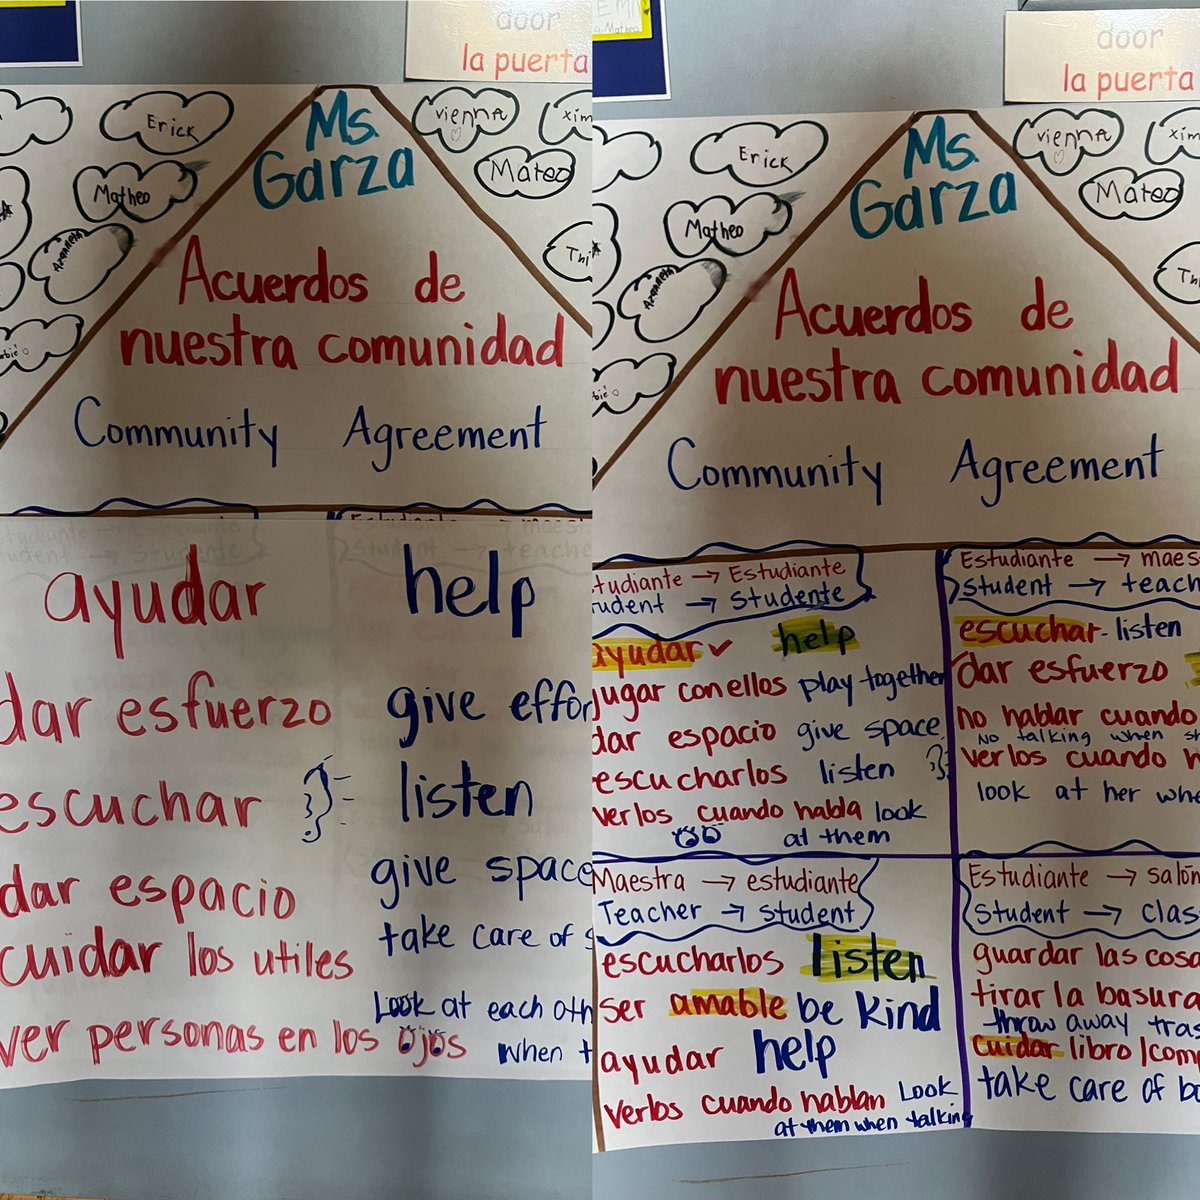 door
la puerta
Erick
Matheo
Ms.
Garza
vienna
Mateo
Acuerdos de
nuestra comunidad
Community Agreement
Estudiante → maes
student → teache
ayudar help
dar esfuerzo give effor
escuchar listen
dar espacio give space
cuidar los utiles take care of s
ver personas en los ojos Look at each oth
when t
door
la puerta
Erick
Matheo
Ms.
Garza
vienna
Mateo
Acuerdos de
nuestra comunidad
Community Agreement
studiante → Estudiante
udent → studente
ayudar ✓ help
jugar con ellos play together
dar espacio give space
escucharlos listen
verlos cuando habla look
at them
Estudiante → maes
student → teach
escuchar - listen
dar esfuerzo
no hablar cuando
No talking when sh
verlos cuando h
look at her whe
Maestra → estudiante
Teacher → student
escucharlos listen
ser amable be kind
ayudar help
verlos cuando hablan Look
at them when talking
Estudiante → salón
student → clas
guardar las cosa
tirar la basura
throw away tras
cuidar libro/comp
take care of bo